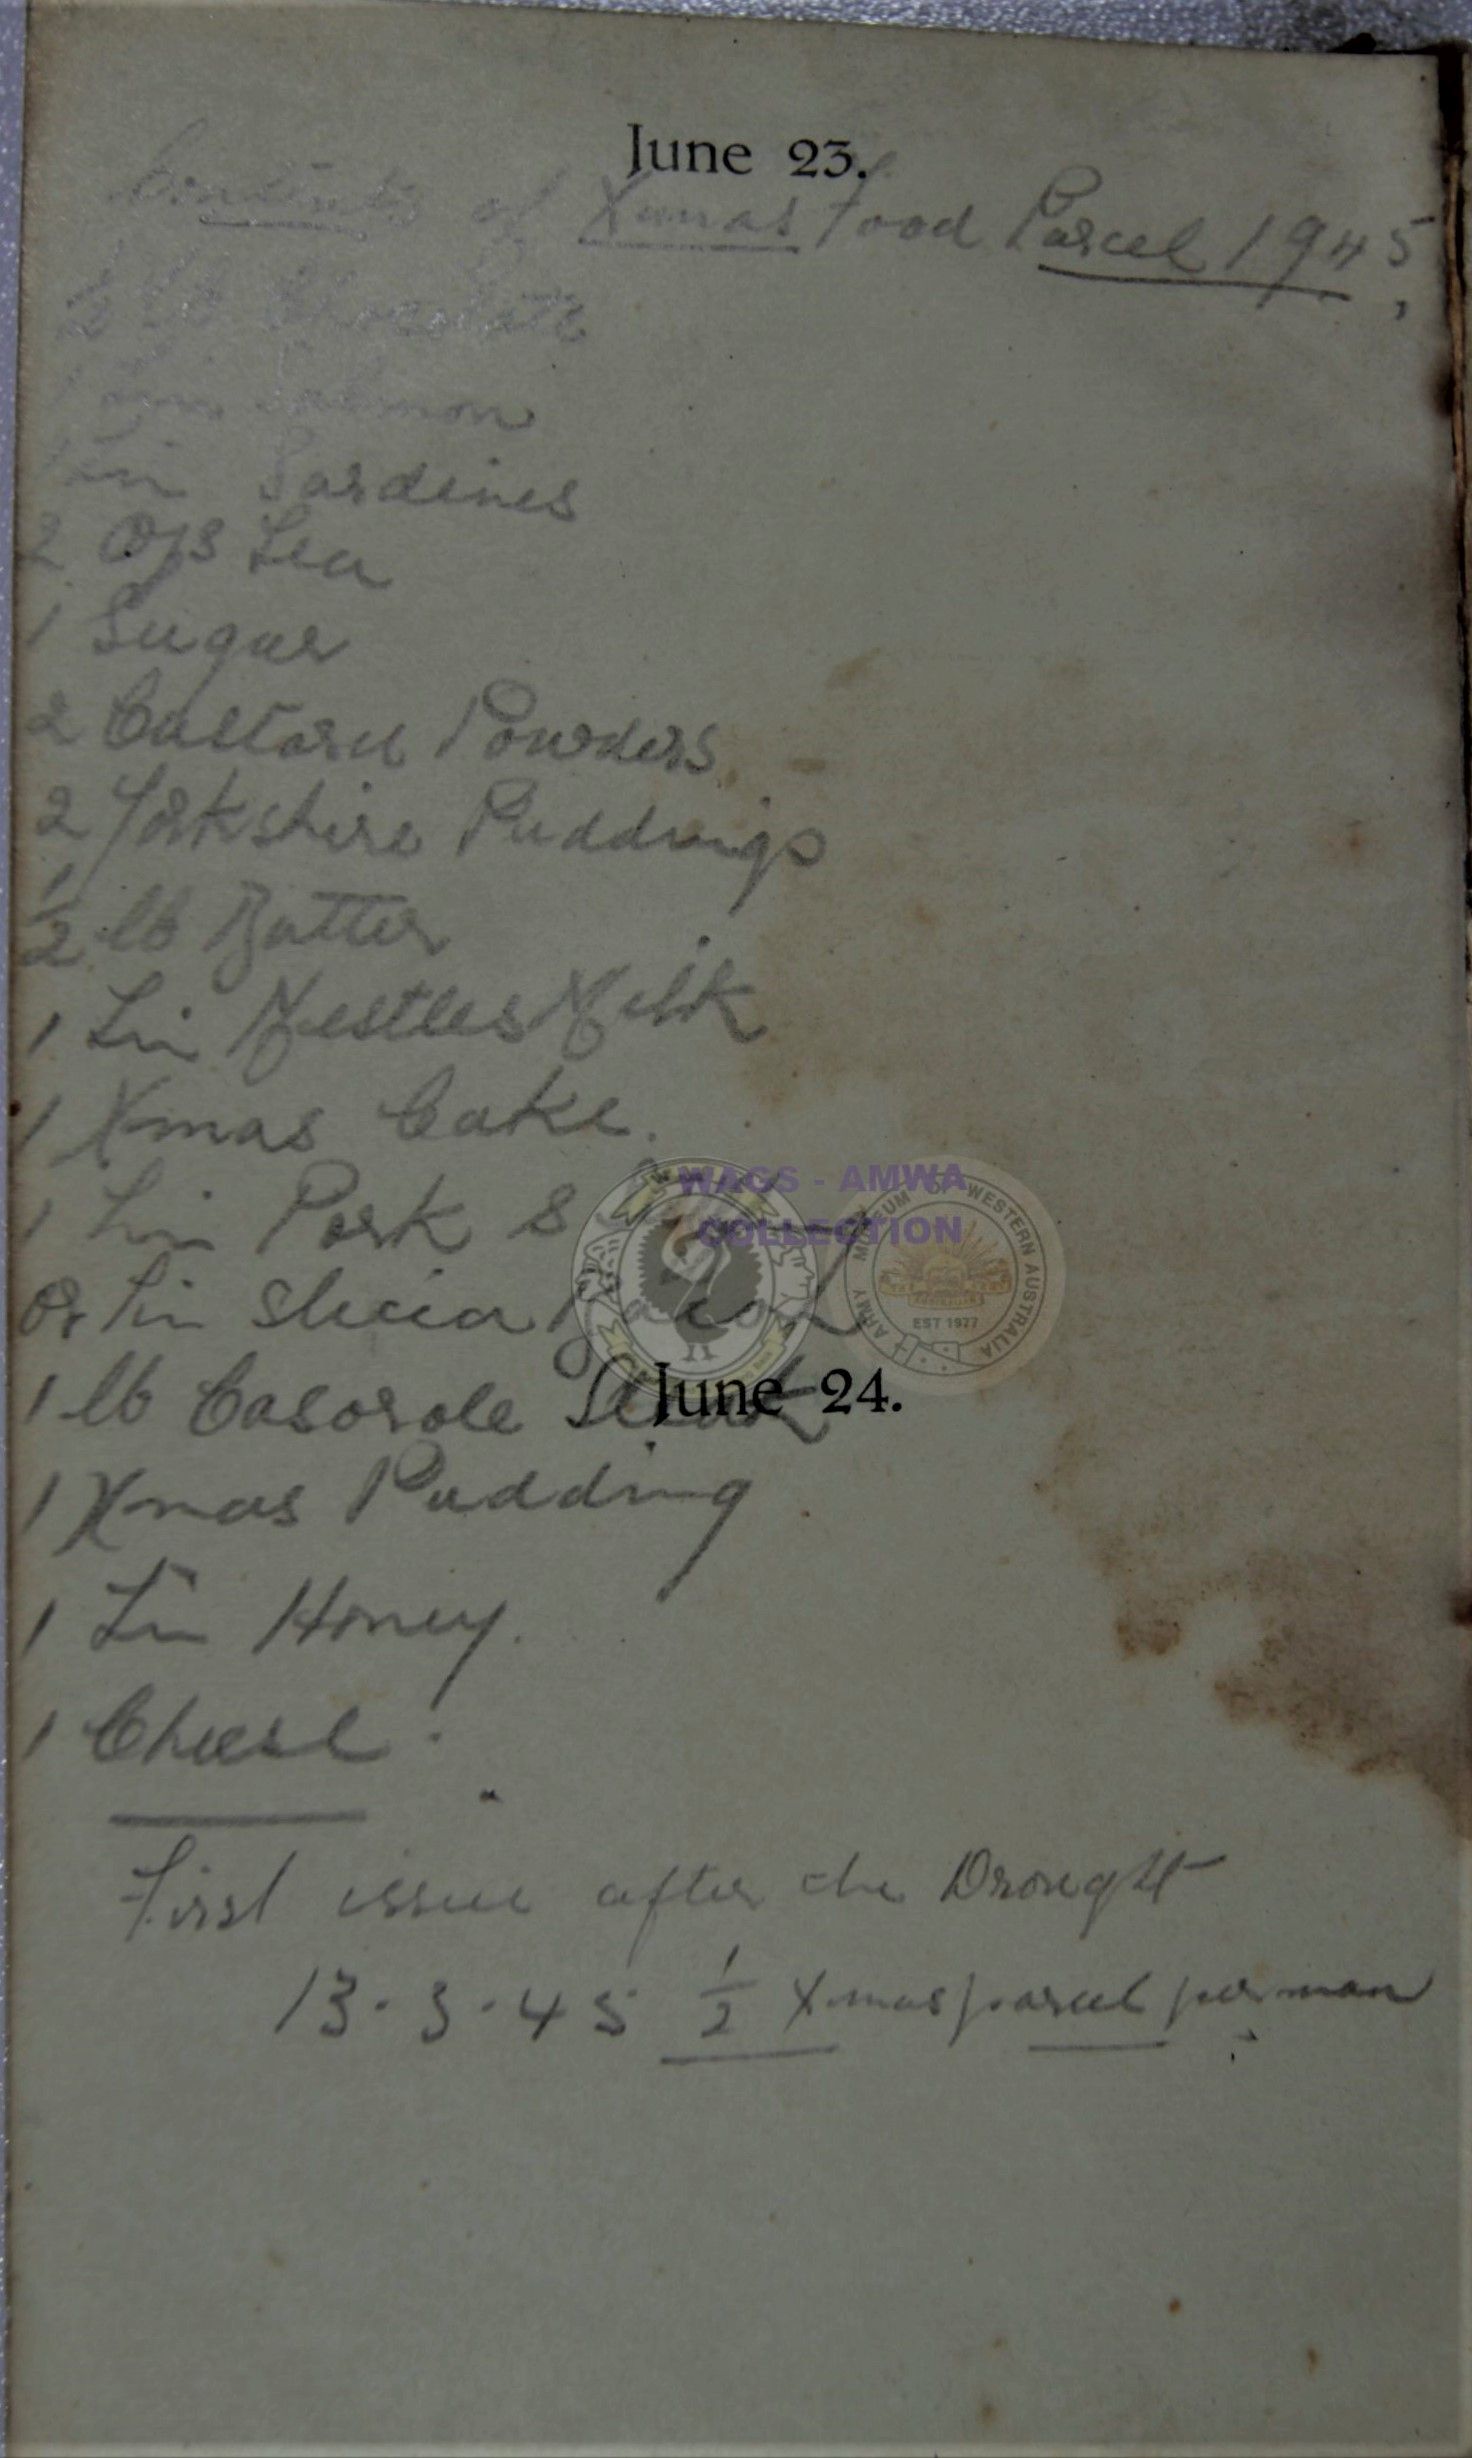 June 23.
Contents of Xmas Food Parcel 1945,
1/2 lb Chocolate
1 Tin Salmon
1 Tin Sardines
2 Ozs Tea
1 Sugar
2 Custard Powders
2 Yorkshire Puddings
1/2 lb Butter
1 Tin Nestles Milk
1 Xmas Cake.
1 Tin Pork &
WAGS - AMWA
COLLECTION
ARMY MUSEUM OF WESTERN AUSTRALIA
EST 1977
or Tin Bacon
1 lb Casorole Steak
June 24.
1 Xmas Pudding
1 Tin Honey.
1 Cheese.
First issue after the Drought
13.3.45 1/2 Xmas parcel per man